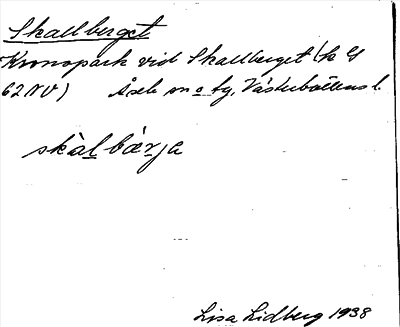 Skallberget
Kronopark vid Skallberget (k G
62 NV) Åsele sn o tg, Västerbottens l.
skàlbær̀ja
Lisa Lidberg 1938